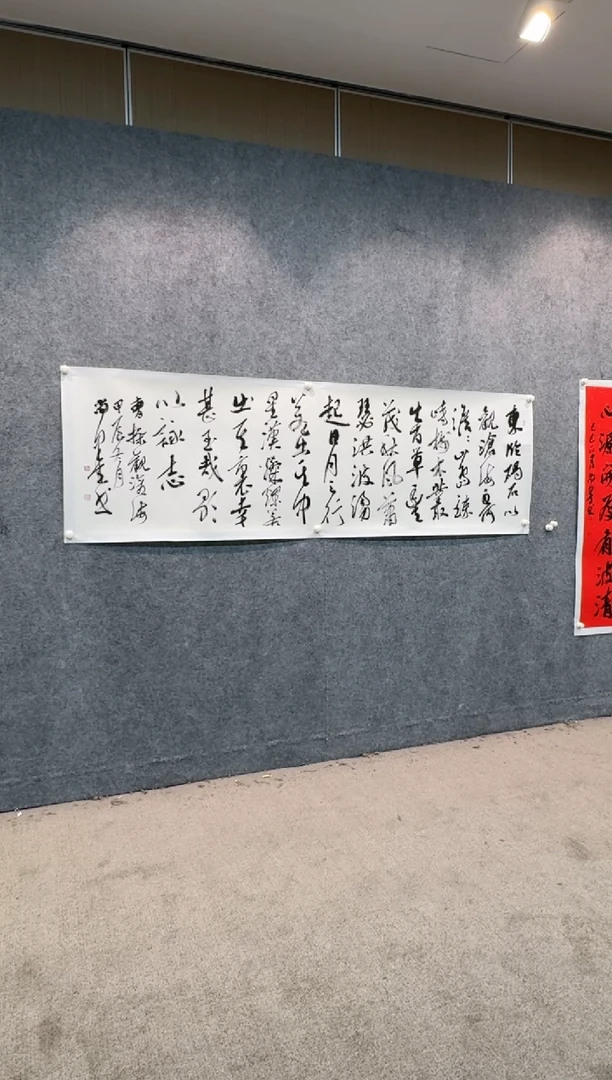 東臨碣石以
觀滄海水何
澹澹山島竦
峙樹木叢
生百草豐
茂秋風蕭
瑟洪波湧
起日月之行
若出其中
星漢燦爛若
出其裏幸
甚至哉歌
以詠志
曹操觀滄海
甲辰五月